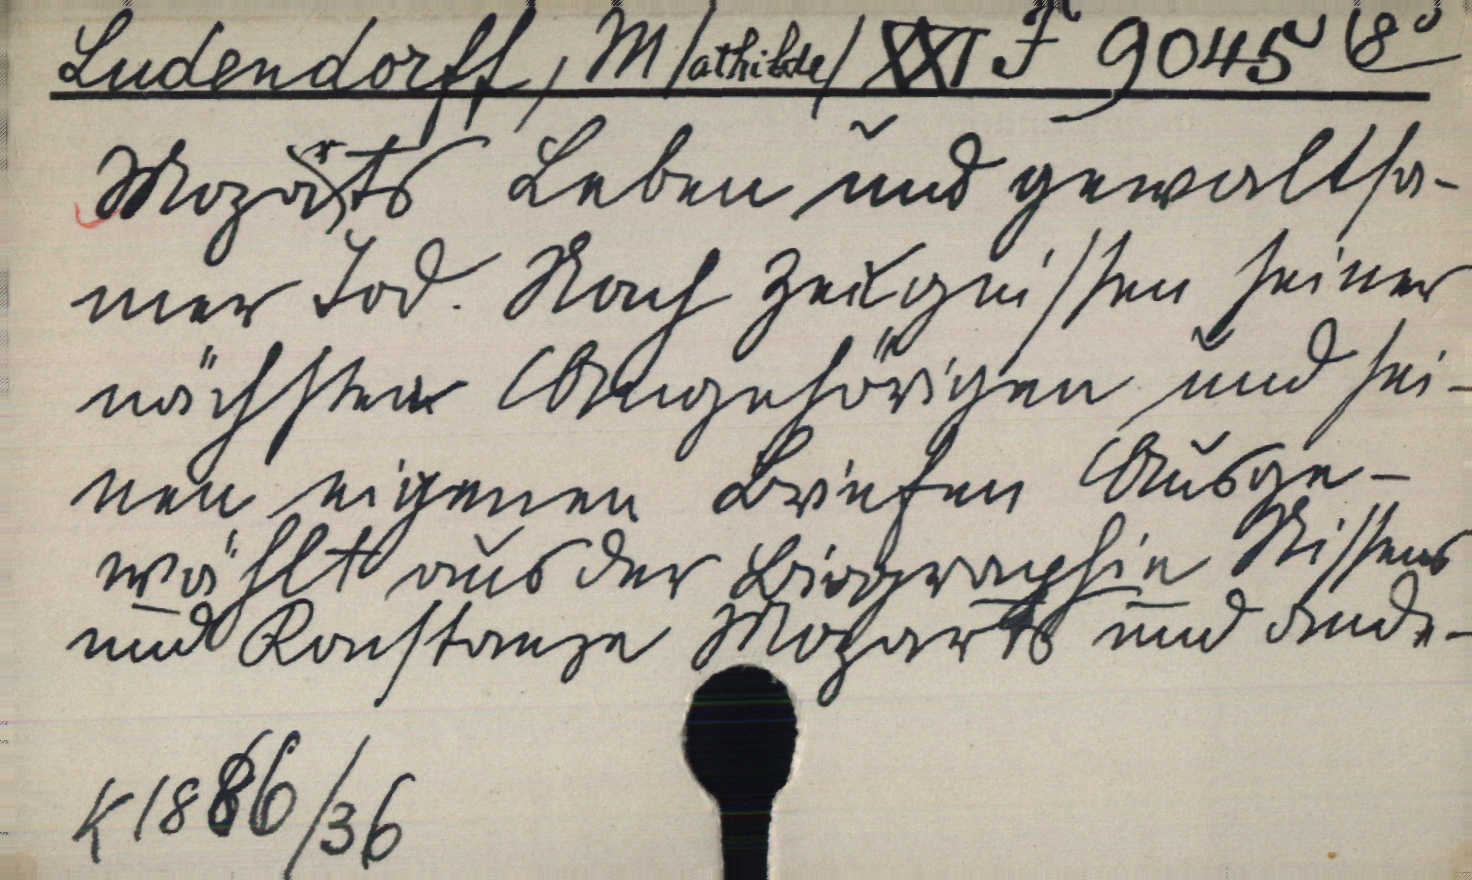 Ludendorff, M/athilde/ XXI F 9045 8°
Mozarts Leben und gewaltsa-
mer Tod. Nach Zeugnissen seiner
nächsten Angehörigen und sei-
nen eigenen Briefen Ausge-
wählt aus der Biographie Nissens
und Konstanze Mozarts und ande-
K 1886/36